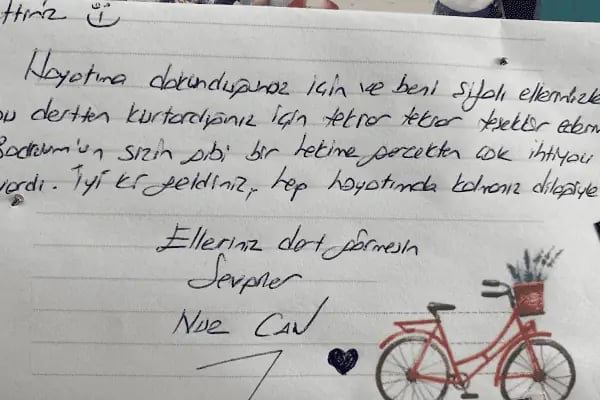 ttiniz
Hayatıma dokunduğunuz için ve beni şifalı ellerinizle
bu dertten kurtardığınız için tekrar tekrar teşekkür ederim
Bodrum'un sizin gibi bir hekime gerçekten çok ihtiyacı
vardı. İyi ki geldiniz, hep hayatımda kalmanız dileğiyle
Elleriniz dert görmesin
Sevgiler
NUR CAN